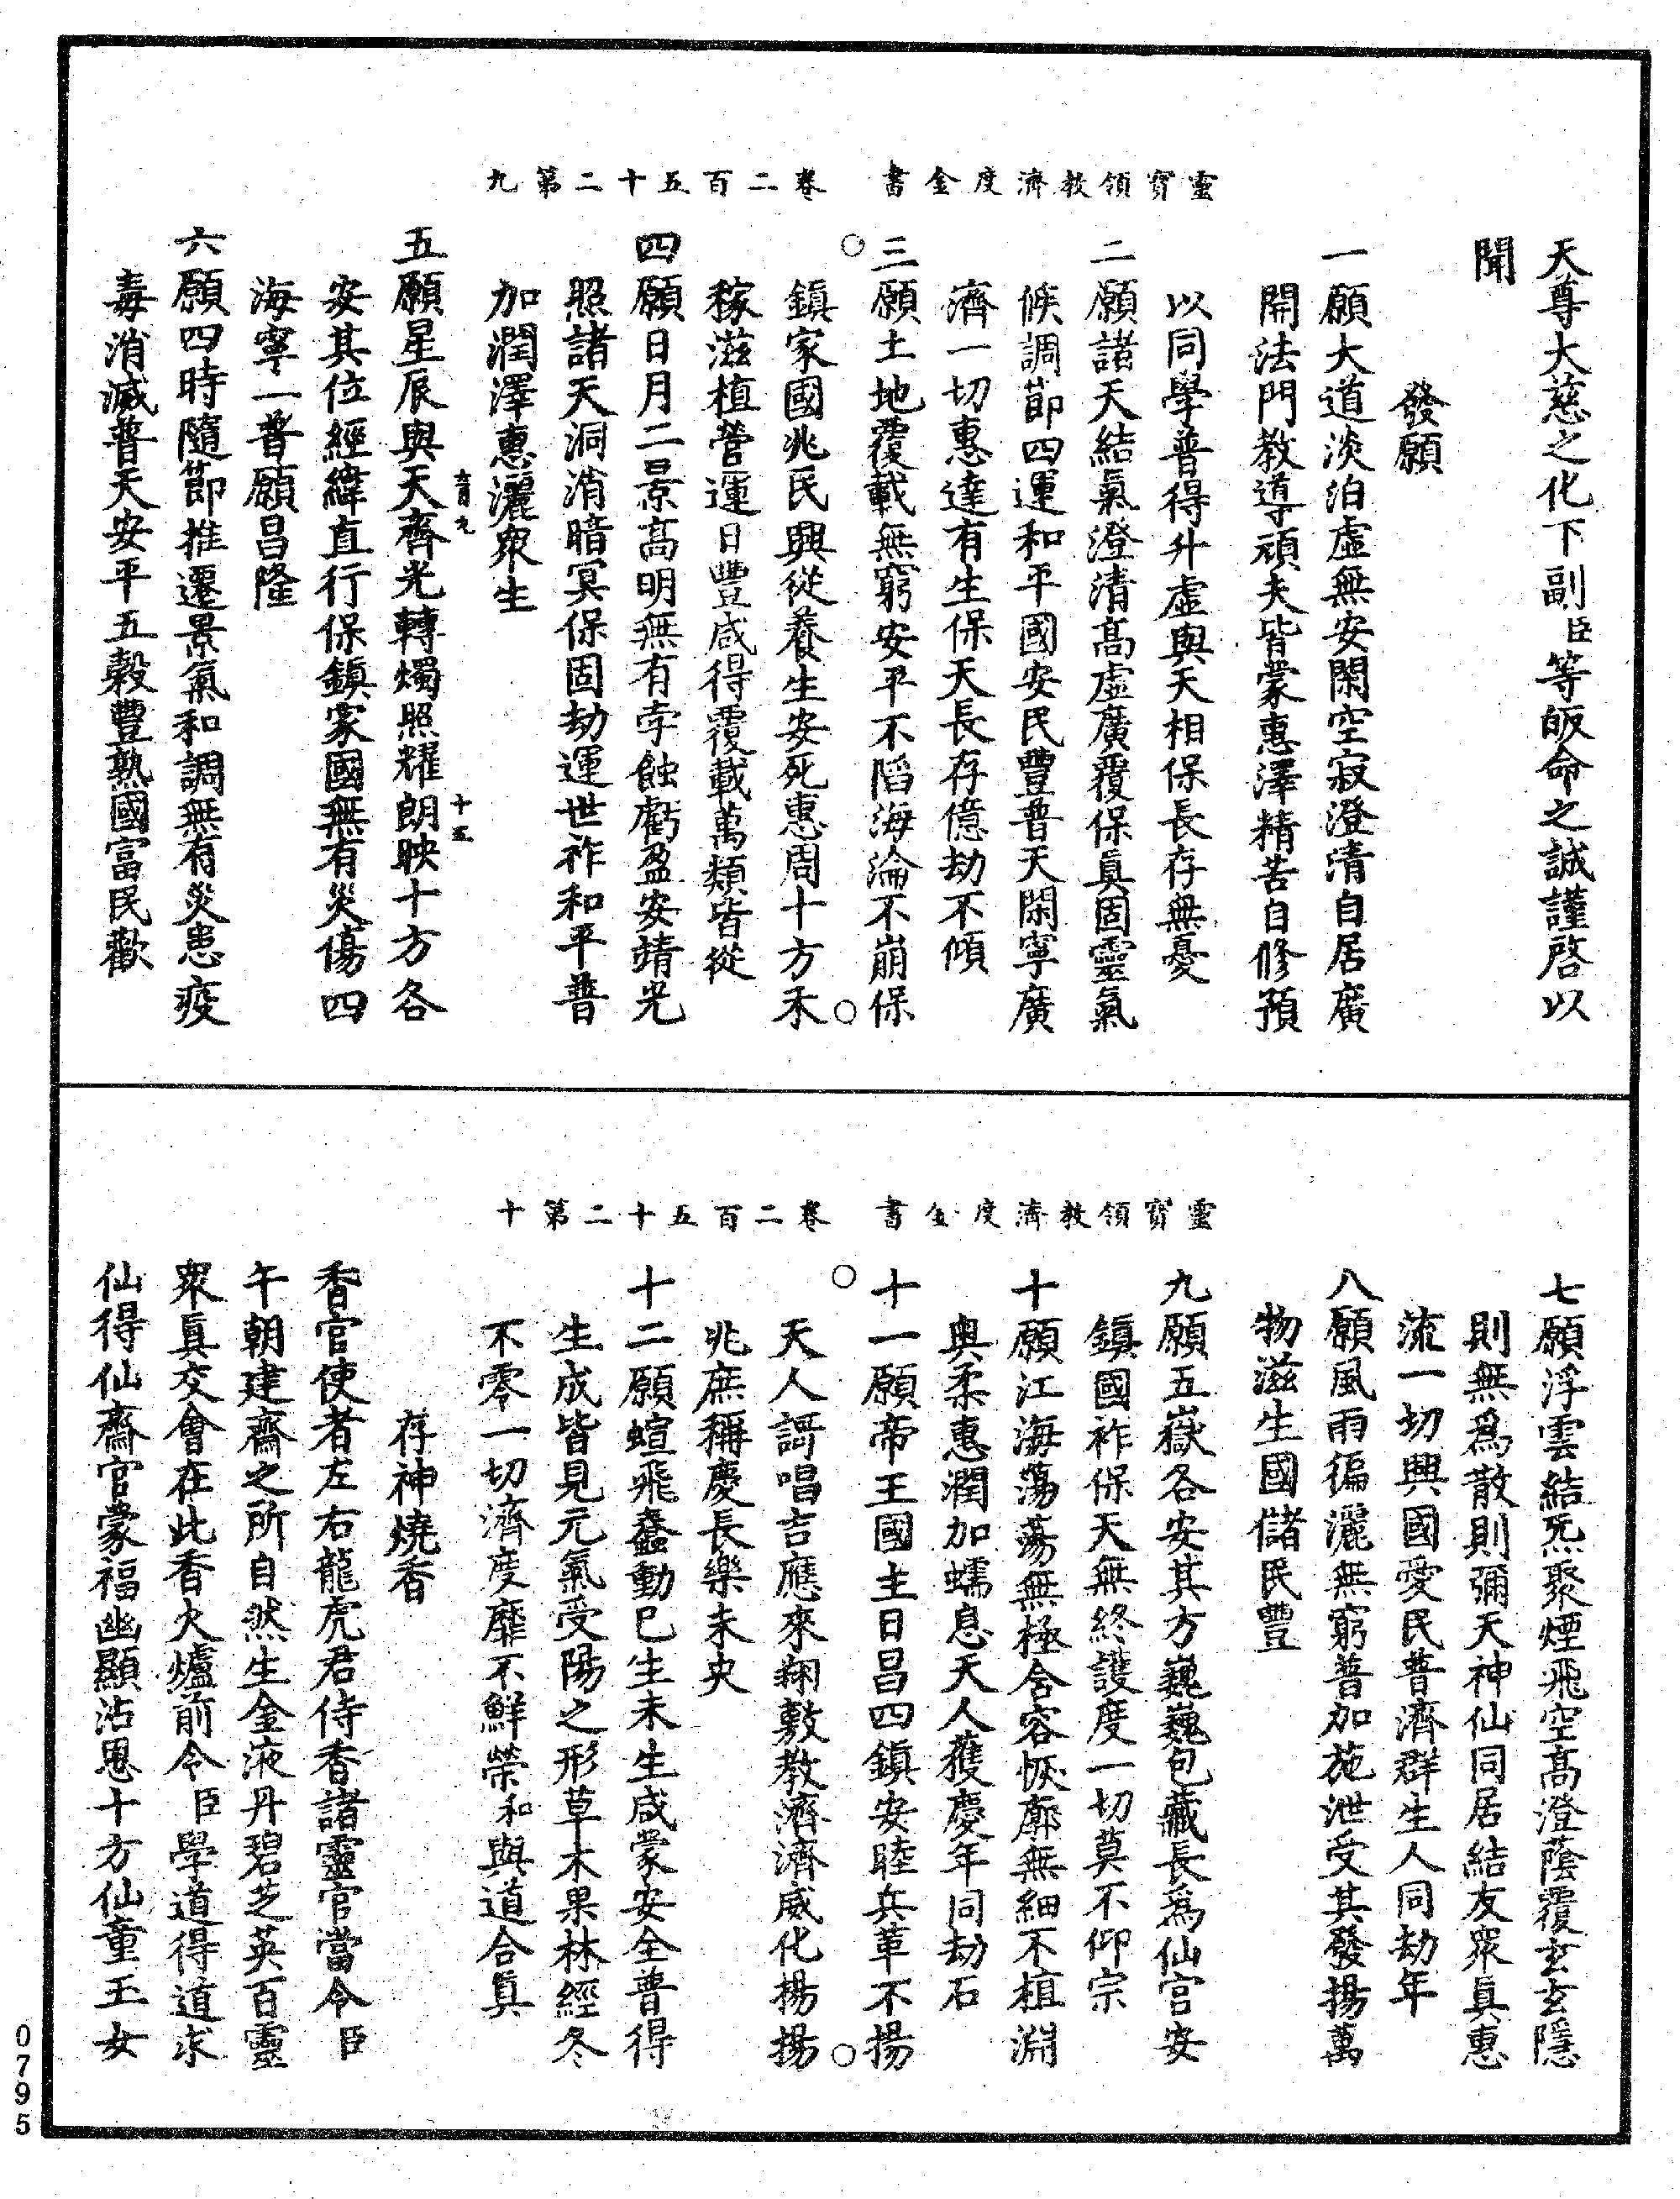 靈寶領教濟度金書　卷二百五十二第九
天尊大慈之化下副臣等皈命之誠謹啓以
聞
發願
一願大道淡泊虛無安閑空寂澄清自居廣
開法門教導頑夫皆蒙惠澤精苦自修預
以同學普得升虛與天相保長存無憂
二願諸天結氣澄清高虛廣覆保眞固靈氣
候調節四運和平國安民豐普天閑寧廣
濟一切惠達有生保天長存億劫不傾
三願土地覆載無窮安平不陷海淪不崩保
鎮家國兆民興從養生安死惠周十方禾
稼滋植營運日豐咸得覆載萬類皆從
四願日月二景高明無有孛蝕虧盈安靖光
照諸天洞消暗冥保固劫運世祚和平普
加潤澤惠灑衆生
五願星辰與天齊光轉燭照耀朗映十方各
安其位經緯直行保鎮家國無有災傷四
海寧一普願昌隆
六願四時隨節推遷景氣和調無有災患疫
毒消滅普天安平五穀豐熟國富民歡
靈寶領教濟度金書　卷二百五十二第十
七願浮雲結炁聚煙飛空高澄蔭覆玄玄隱
則無爲散則彌天神仙同居結友衆眞惠
流一切興國愛民普濟群生人同劫年
八願風雨徧灑無窮普加施泄受其發揚萬
物滋生國儲民豐
九願五嶽各安其方巍巍包藏長爲仙官安
鎮國祚保天無終護度一切莫不仰宗
十願江海蕩蕩無極含容恢廓無細不植淵
奧柔惠潤加蠕息天人獲慶年同劫石
十一願帝王國主日昌四鎮安睦兵革不揚
天人謌唱吉應來翔敷教濟濟威化揚揚
兆庶稱慶長樂未央
十二願蝖飛蠢動已生未生咸蒙安全普得
生成皆見元氣受陽之形草木果林經冬
不零一切濟度靡不鮮榮和與道合眞
存神燒香
香官使者左右龍虎君侍香諸靈官當令臣
午朝建齋之所自然生金液丹碧芝英百靈
衆眞交會在此香火爐前令臣學道得道求
仙得仙齋官蒙福幽顯沾恩十方仙童玉女
0795